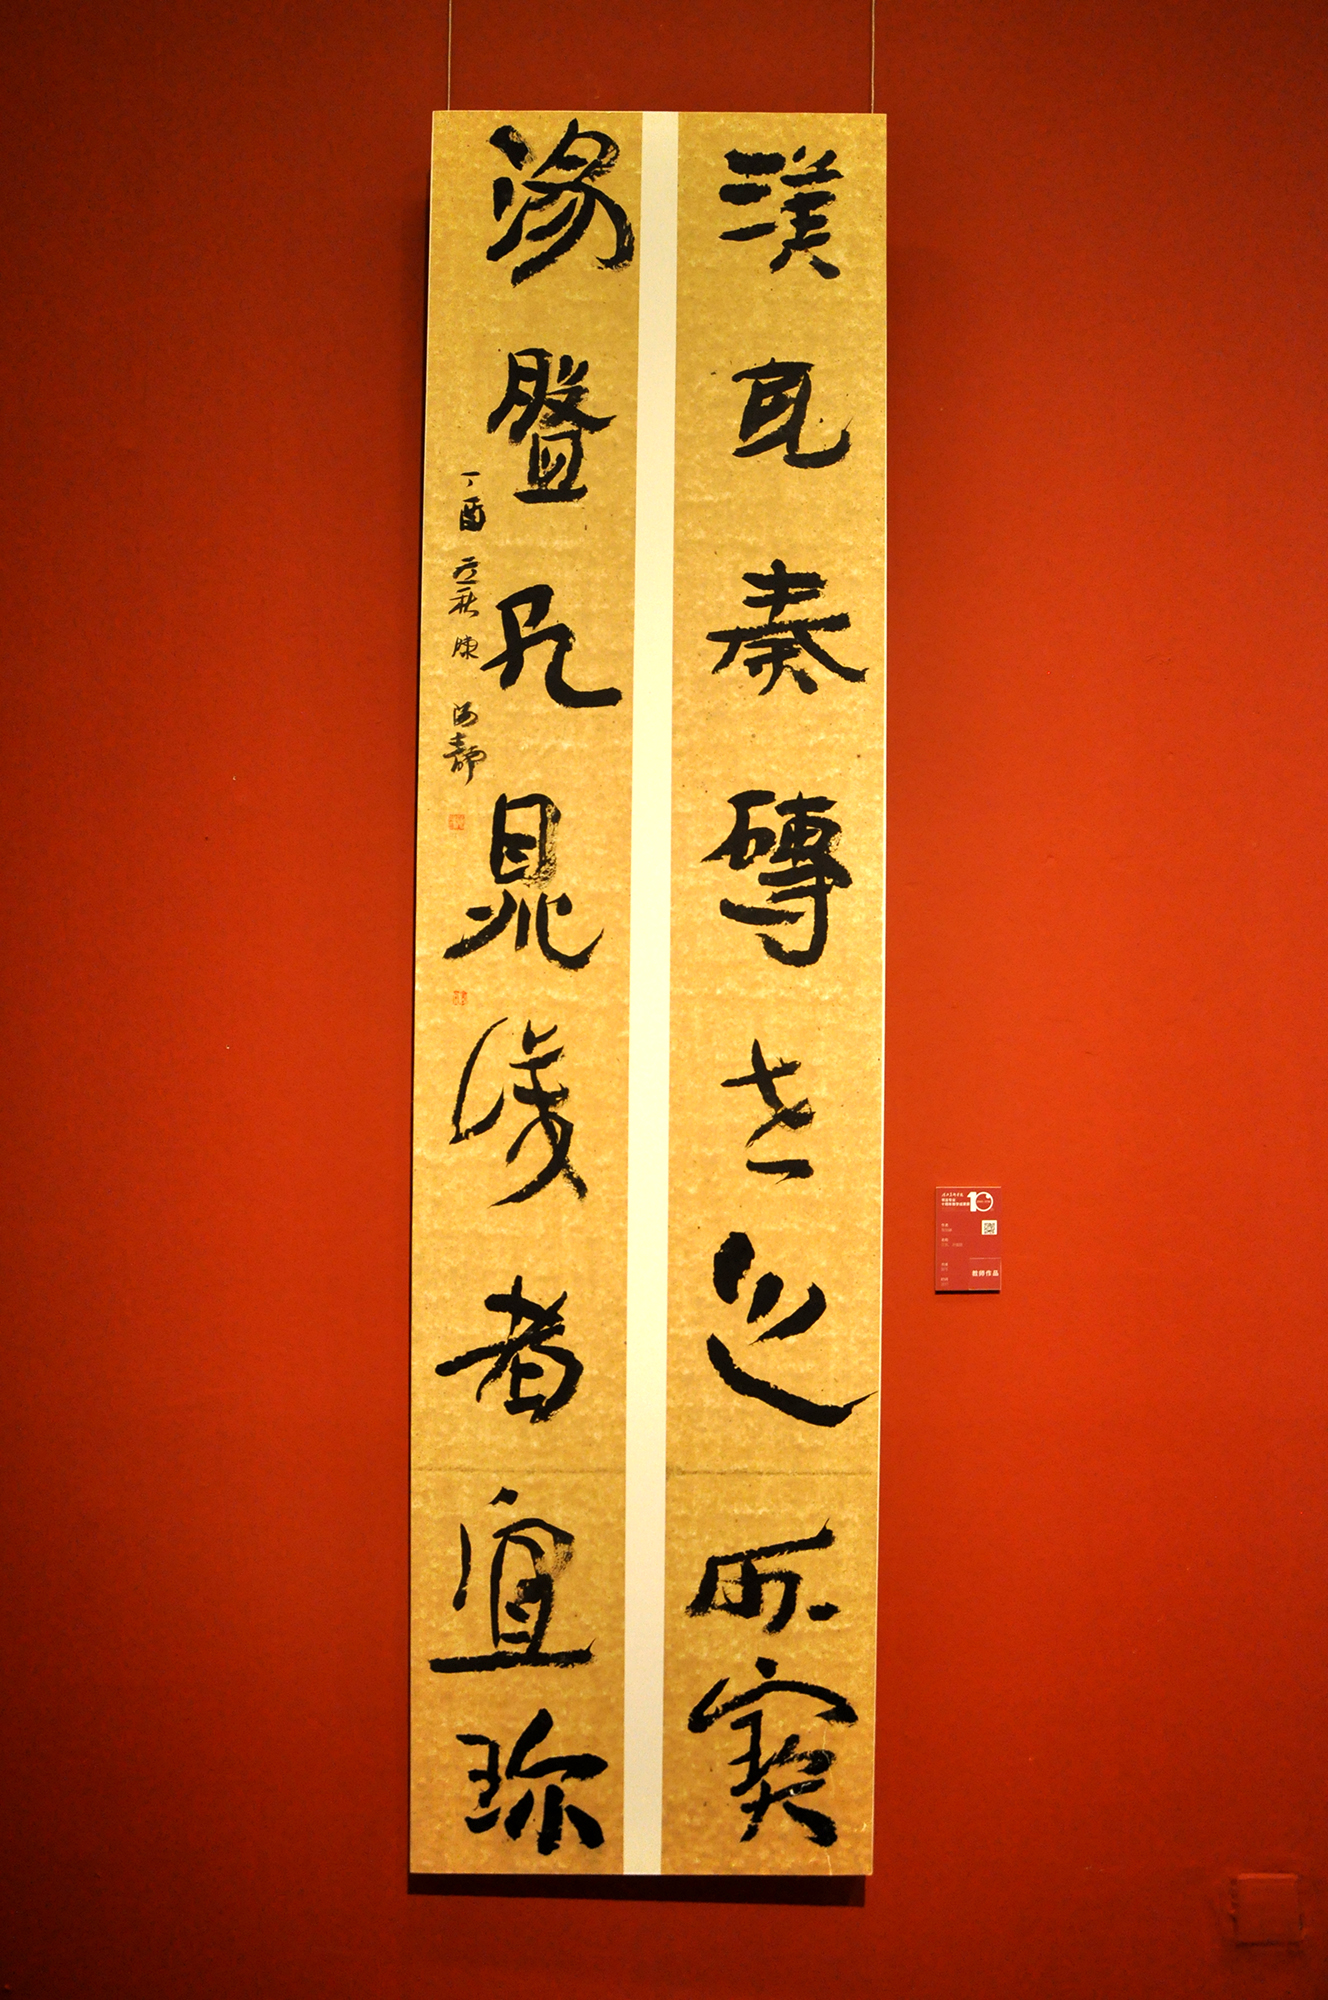 漢瓦秦磚世之所寶
湯盤孔鼎後者宜珍
丁酉立秋陳海靜
10
教师作品